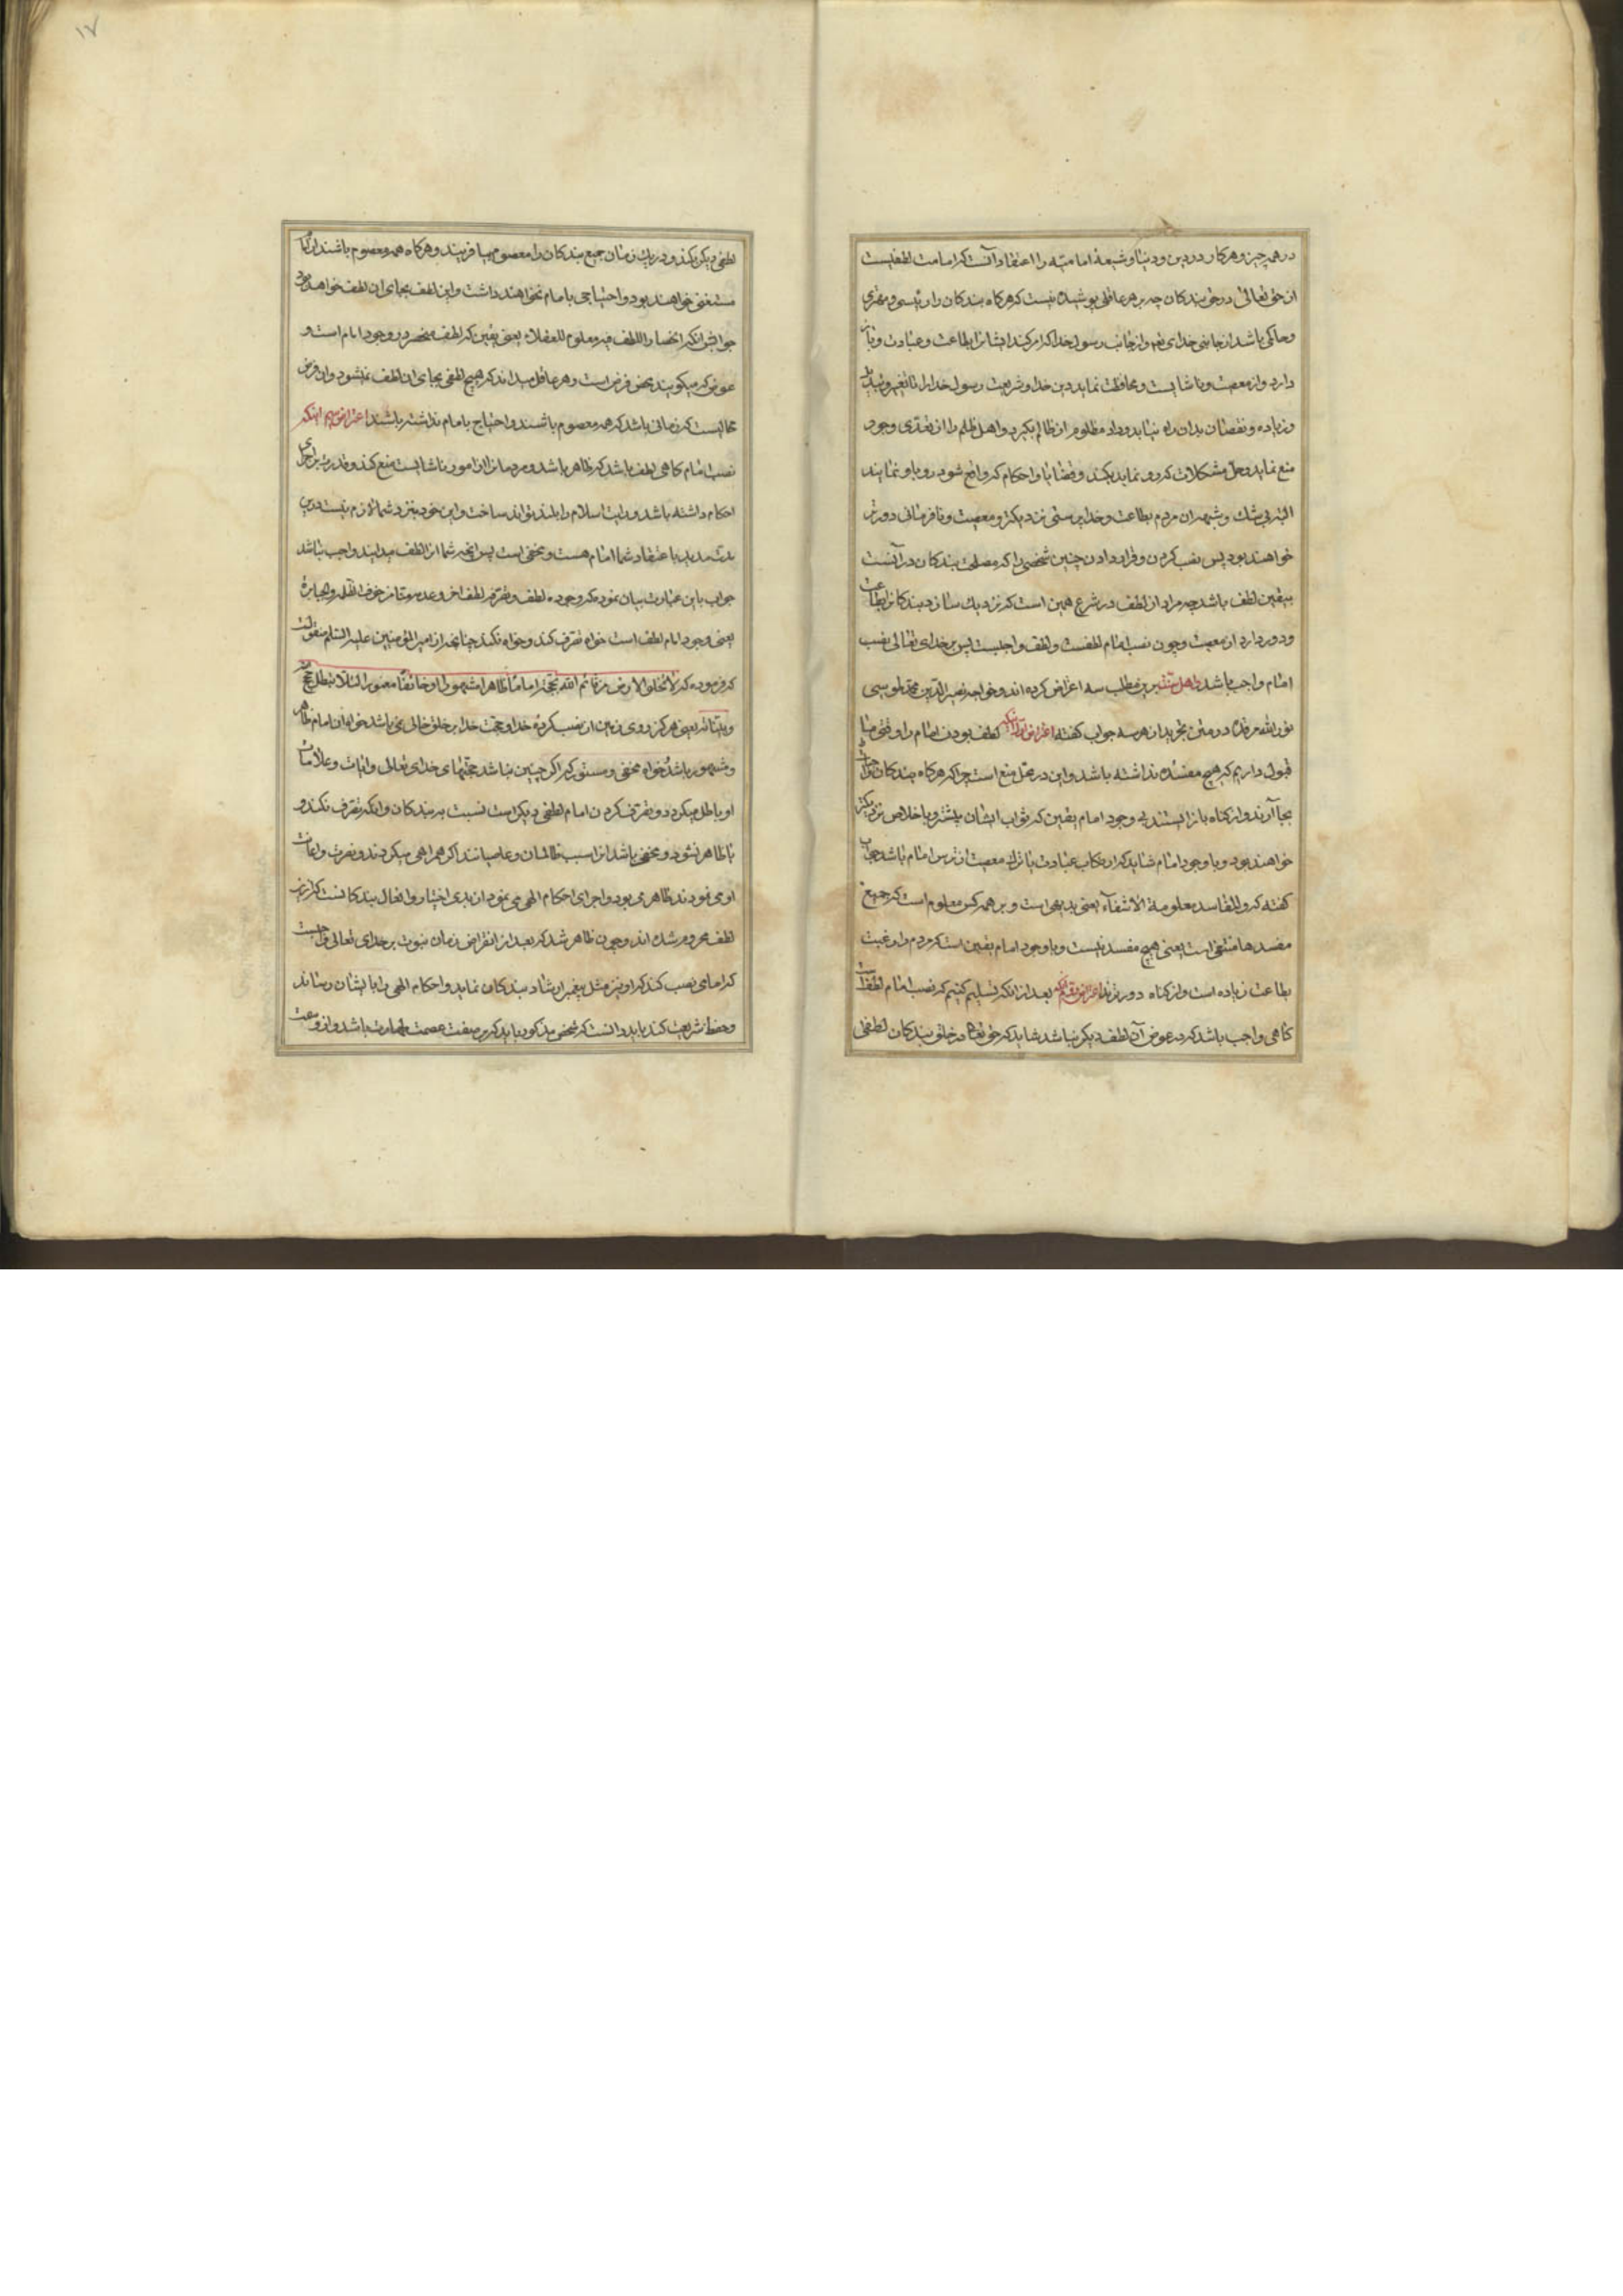 در همه چیز و هر کار در دین و دنیا و شیعهٔ امامیّه را اعتقاد آنست که امامت لطفیست
از حق تعالی در حق بندکان چه بر هر عاقلی پوشیده نیست که هرکاه بندکان را رئیسی و مهتری
و حاکمی باشد از جانب خدای تعه و از جانب رسول خدا که امر کند ایشانرا بطاعت و عبادت و باز
دارد و از معصیت و ناشایست و محافظت نماید دین خدا و شریعت رسول خدا را تا تغییر و تبدیل
و زیاده و نقصان بدان راه نیابد و داد مظلوم از ظالم بکیرد و اهل ظلم را از تعدّی وجور
منع نماید و حلّ مشکلات که رو نماید بکند و قضایا و احکام که واقع شود رو باو نمایند
البته بی شک و شبهه ان مردم بطاعت و خداپرستی نزدیکتر و معصیت و نافرمانی دورتر
خواهند بود پس نصب کردن و قرار دادن چنین شخصی را که مصلحت بندکان در آنست
بیقین لطف باشد چه مراد از لطف در شرع همین است که نزدیک سازد بندکانرا بطاعت
و دور دارد از معصیت و چون نصب امام لطفست و لطف واجبست پس بر خدای تعالی نصب
امام واجب باشد و اهل سنّت برین مطلب سه اعتراض کرده اند و خواجه نصیر الدّین محمّد طوسی
نور الله مرقده در متن تجرید از هر سه جواب کفته اعتراض اول آنکه لطف بودن امام را وقتی ما
قبول داریم که هیچ مفسده نداشته باشد و این در محل منع است چرا که هرکاه بندکان واجبات
بجا آرند و از کناه باز ایستند بی وجود امام یقین که ثواب ایشان بیشتر و باخلاص نزدیکتر
خواهند بود و با وجود امام شاید که ارتکاب عبادت یا ترک معصیت از ترس امام باشد جواب
کفته که و المفاسد معلومة الانتفاء یعنی بدیهی است و بر همه کس معلوم است که جمیع
مفسدها منتفی است یعنی هیچ مفسده نیست و با وجود امام یقین است که مردم را رغبت
بطاعت زیاده است و از کناه دورترند اعتراض دویم آنکه بعد از انکه تسلیم کنیم که نصب امام لطف است
کاهی واجب باشد که در عوض آن لطف دیکر نباشد شاید که حق تعالی در خلق بندکان لطفی
لطفی دیکر بکند و در یک زمان جمیع بندکان را معصوم بیافریند و هرکاه همه معصوم باشند از امام
مستغنی خواهند بود و احتیاجی بامام نخواهند داشت و این لطف بجای ان لطف خواهد بود
جوابش انکه انحصار اللطف فیه معلوم للعقلاء یعنی یقین که لطف منحصر در وجود امام است و
عوض که میکویند محض فرض است و هر عاقل میداند که هیچ لطفی بجای ان لطف نمیشود و ان فرض
محالیست که زمانی باشد که همه معصوم باشند و احتیاج بامام نداشته باشند اعتراض سیم اینکه
نصب امام کاهی لطف باشد که ظاهر باشد و مردمانرا از امور ناشایست منع کند و قدرت بر اجرای
احکام داشته باشد و رایت اسلام را بلند تواند ساخت و این خود بنزد شما لازم نیست درین
مدت مدید باعتقاد شما امام هست و مخفی است پس انچه شما از لطف میدانید واجب نباشد
جواب باین عبارت بیان نموده که وجوده لطف و تصرّفه لطف اخر و عدمه منّا از خوف الظلمه و الجبابره
یعنی وجود امام لطف است خواه تصرف کند و خواه نکند چنانچه از امیر المؤمنین علیه السّلم منقولست
که فرموده که لا تخلو الارض من قائم لله بحجّة اما ظاهرا مشهورا او خائفا مغمورا لئلا تبطل حجج الله
و بیّناته یعنی هرکز روی زمین از نصب کردهٔ خدا و حجت خدا بر خلق خالی نمی باشد خواه ان امام ظاهر
و مشهور باشد خواه مخفی و مستور که اکر چنین نباشد حجّتهای خدای تعالی و اثبات و علامات
او باطل میکردد و تصرف کردن امام لطفی دیکر است نسبت به بندکان و انکه تصرف نکند و
یا ظاهر نشود و مخفی باشد از سبب ظالمان و عاصیانند اکر همراهی میکردند و نصرت و اعانت
او می نمودند ظاهر می بود و اجرای احکام الهی می نمود از بدی اختیار و افعال بندکانست که ازین
لطف محروم شده اند و چون ظاهر شد که بعد از انقراض زمان نبوت بر خدای تعالی واجبست
که امامی نصب کند که او نیز مثل پیغمبر ارشاد بندکان نماید و احکام الهی را بایشان رساند
و حفظ شریعت کند باید دانست که شخص مذکور باید که بر صفت عصمت و طهارت باشد و از